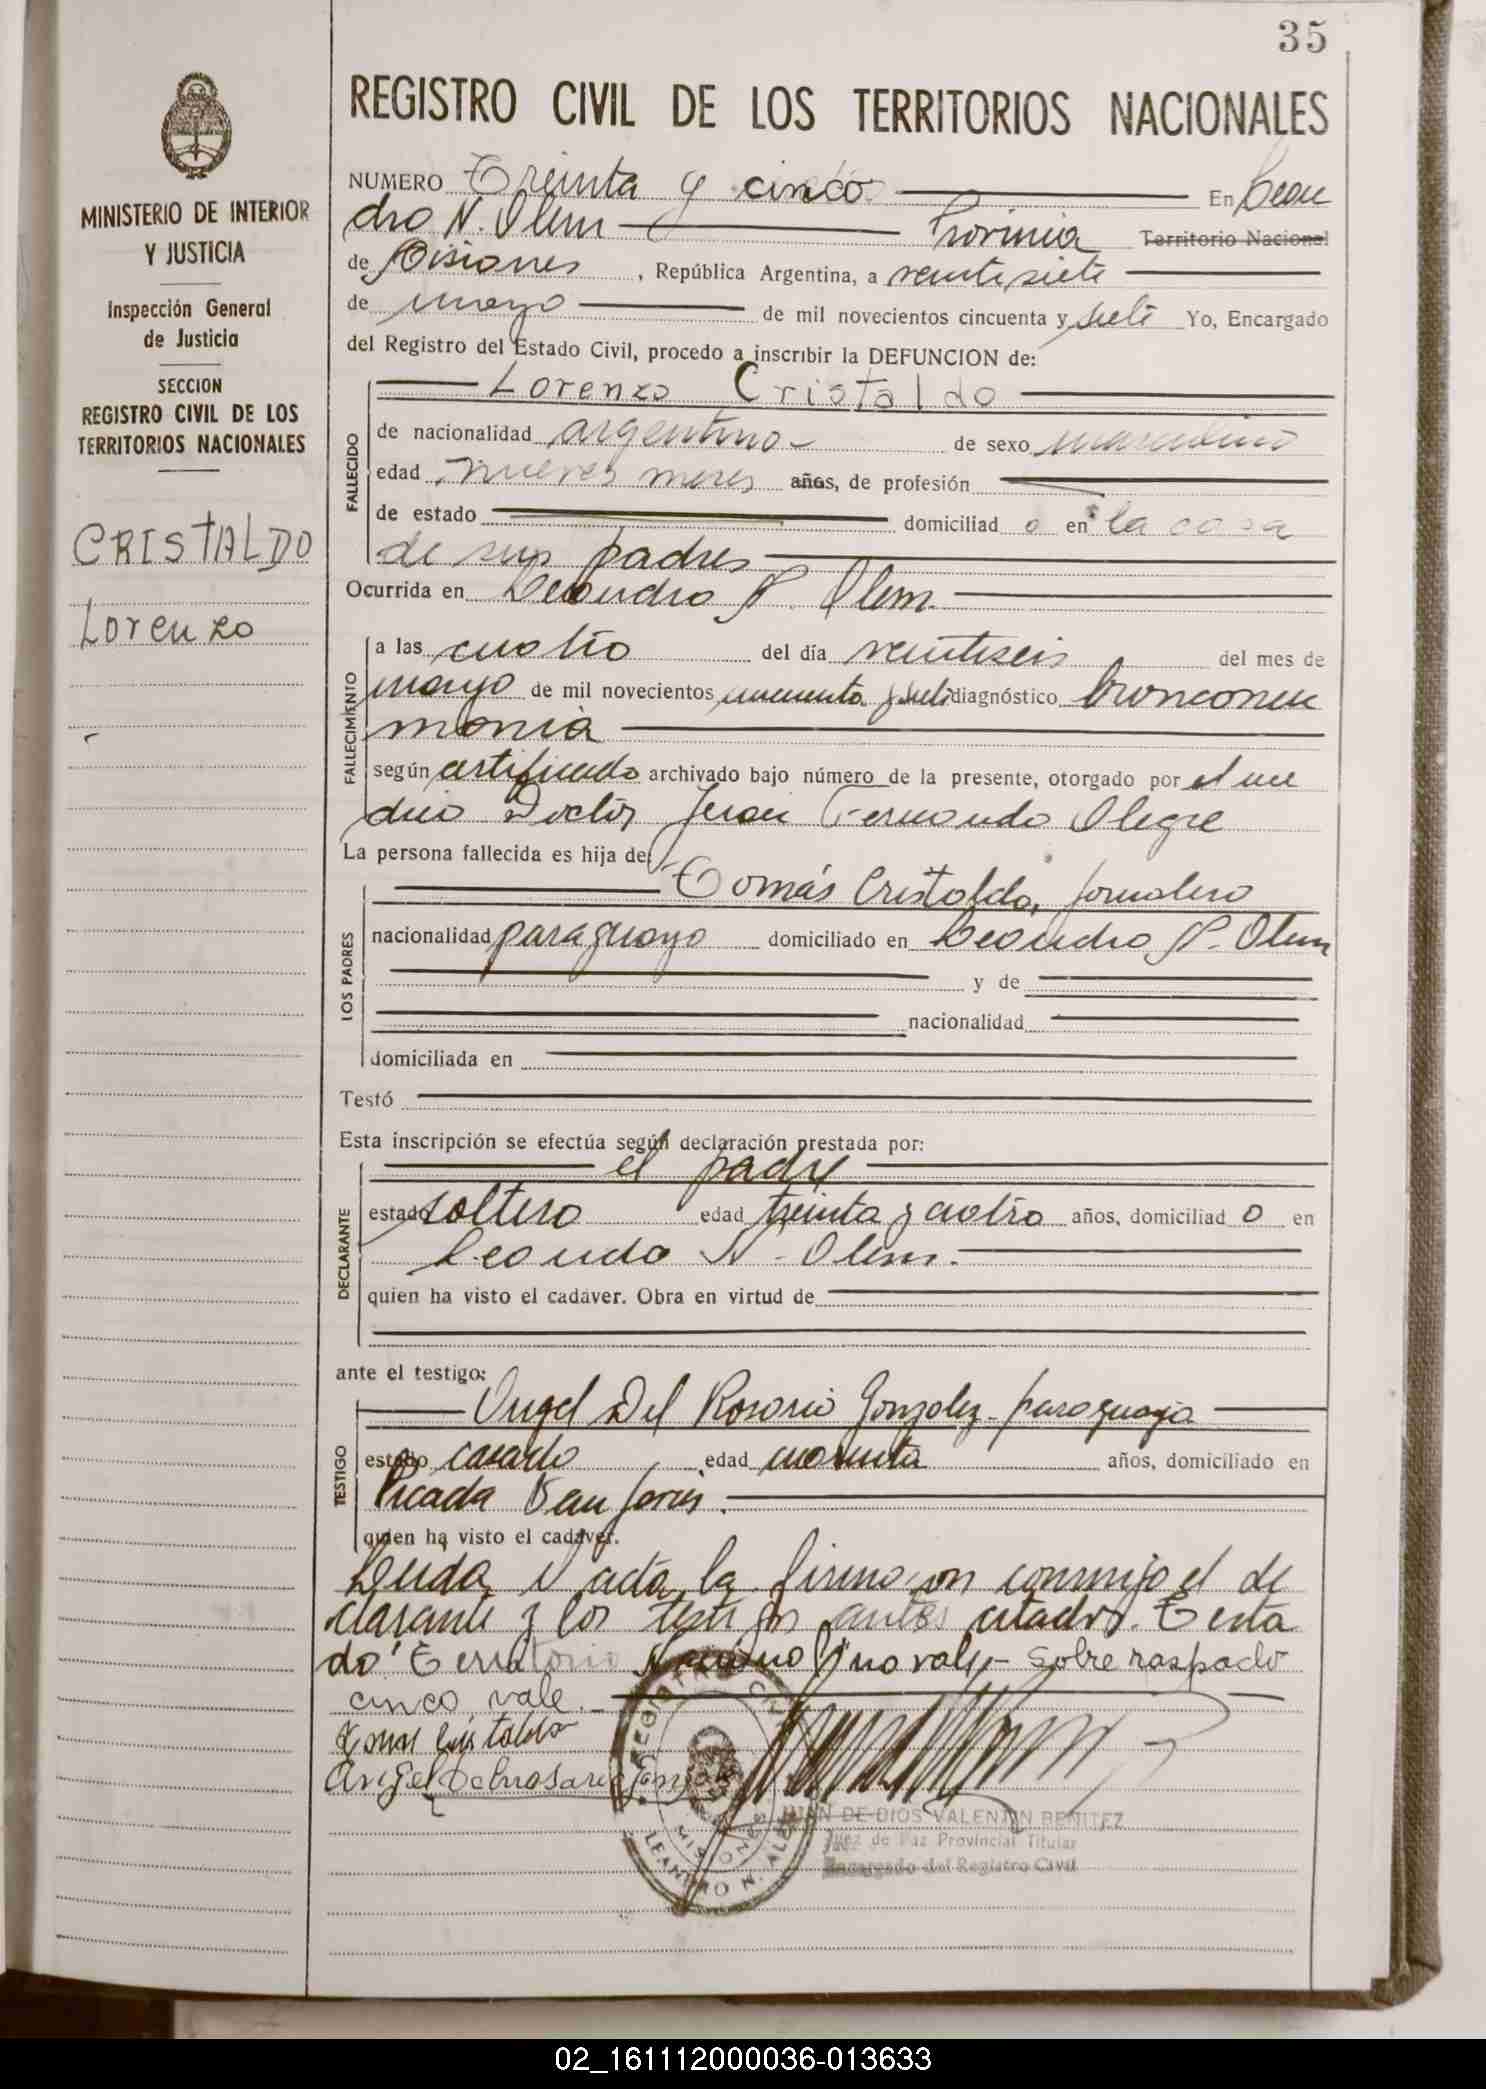 35
REGISTRO CIVIL DE LOS TERRITORIOS NACIONALES
MINISTERIO DE INTERIOR
Y JUSTICIA
Inspección General
de Justicia
SECCION
REGISTRO CIVIL DE LOS
TERRITORIOS NACIONALES
CRISTALDO
Lorenzo
NUMERO Treinta y cinco En Lean
dro N. Alem Provincia Territorio Nacional
de Misiones, República Argentina, a veintisiete
de mayo de mil novecientos cincuenta y siete Yo, Encargado
del Registro del Estado Civil, procedo a inscribir la DEFUNCION de:
Lorenzo Cristaldo
FALLECIDO
de nacionalidad argentino de sexo masculino
edad nueves meses años, de profesión
de estado domiciliad o en la casa
de sus padres
Ocurrida en Leandro N. Alem.
FALLECIMIENTO
a las cuatro del día veintiseis del mes de
mayo de mil novecientos cincuenta y siete diagnóstico bronconeu
monia
según certificado archivado bajo número de la presente, otorgado por el me
dico Doctor Fernando Alegre
La persona fallecida es hija de:
LOS PADRES
Tomás Cristaldo, jornalero
nacionalidad paraguayo domiciliado en Leandro N. Alem
y de
nacionalidad
domiciliada en
Testó
Esta inscripción se efectúa según declaración prestada por:
el padre
DECLARANTE
estado soltero edad treinta y cuatro años, domiciliad o en
Leandro N. Alem.
quien ha visto el cadáver. Obra en virtud de
ante el testigo:
TESTIGO
Angel Del Rosario Gonzalez - paraguayo
estado casado edad cuarenta años, domiciliado en
Picada San Javier.
quien ha visto el cadáver.
Leida el acta, la firmaron conmigo el de
clarante y los testigos antes citados. Testa
do "Territorio Nacional" no vale - sobre raspado
cinco vale.
Tomas Cristaldo
Angel Delrosario Gonzalez
REGISTRO CIVIL
MISIONES
LEANDRO N. ALEM
JUAN DE DIOS VALENTIN BENITEZ
Juez de Paz Provincial Titular
Encargado del Registro Civil
02_161112000036-013633